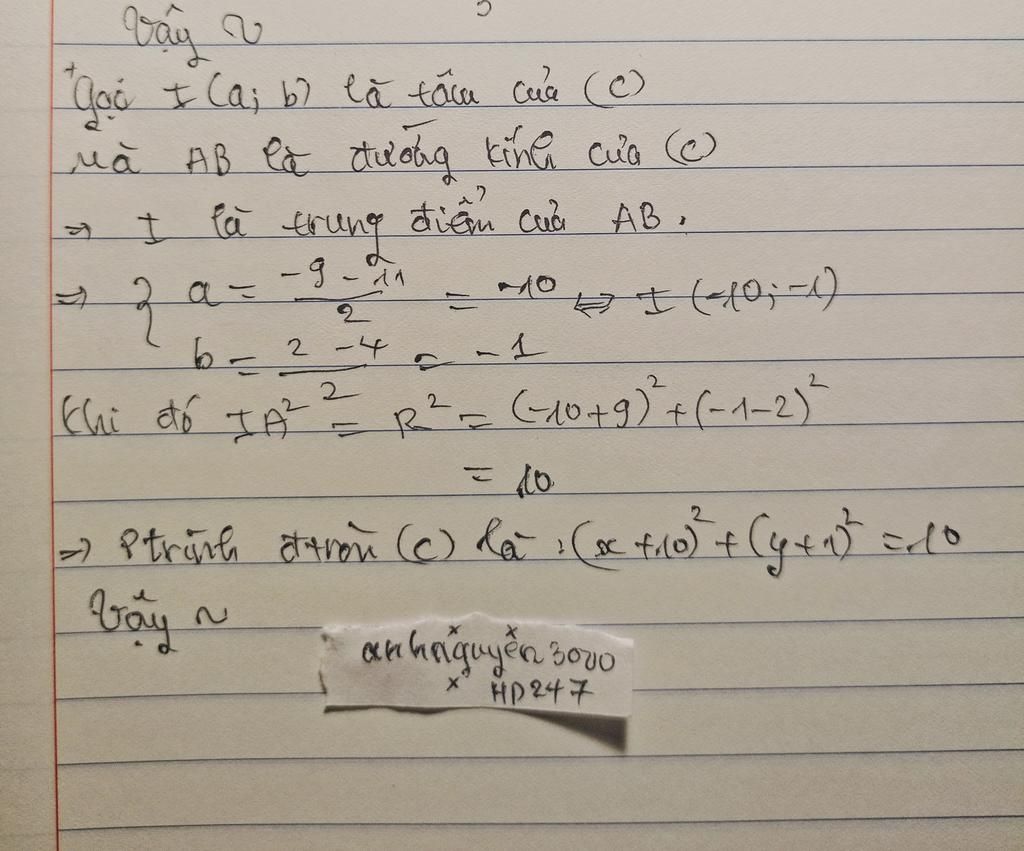 Vậy ~
+ Gọi I (a; b) là tâm của (C)
Mà AB là đường kính của (C)
=> I là trung điểm của AB.
=> { a = (-9 - 11)/2 = -10 <=> I (-10; -1)
b = (2 - 4)/2 = -1
Khi đó IA² = R² = (-10+9)² + (-1-2)²
= 10
=> Ptrình đtròn (C) là : (x + 10)² + (y + 1)² = 10
Vậy ~
anhnguyễn3000
HD247